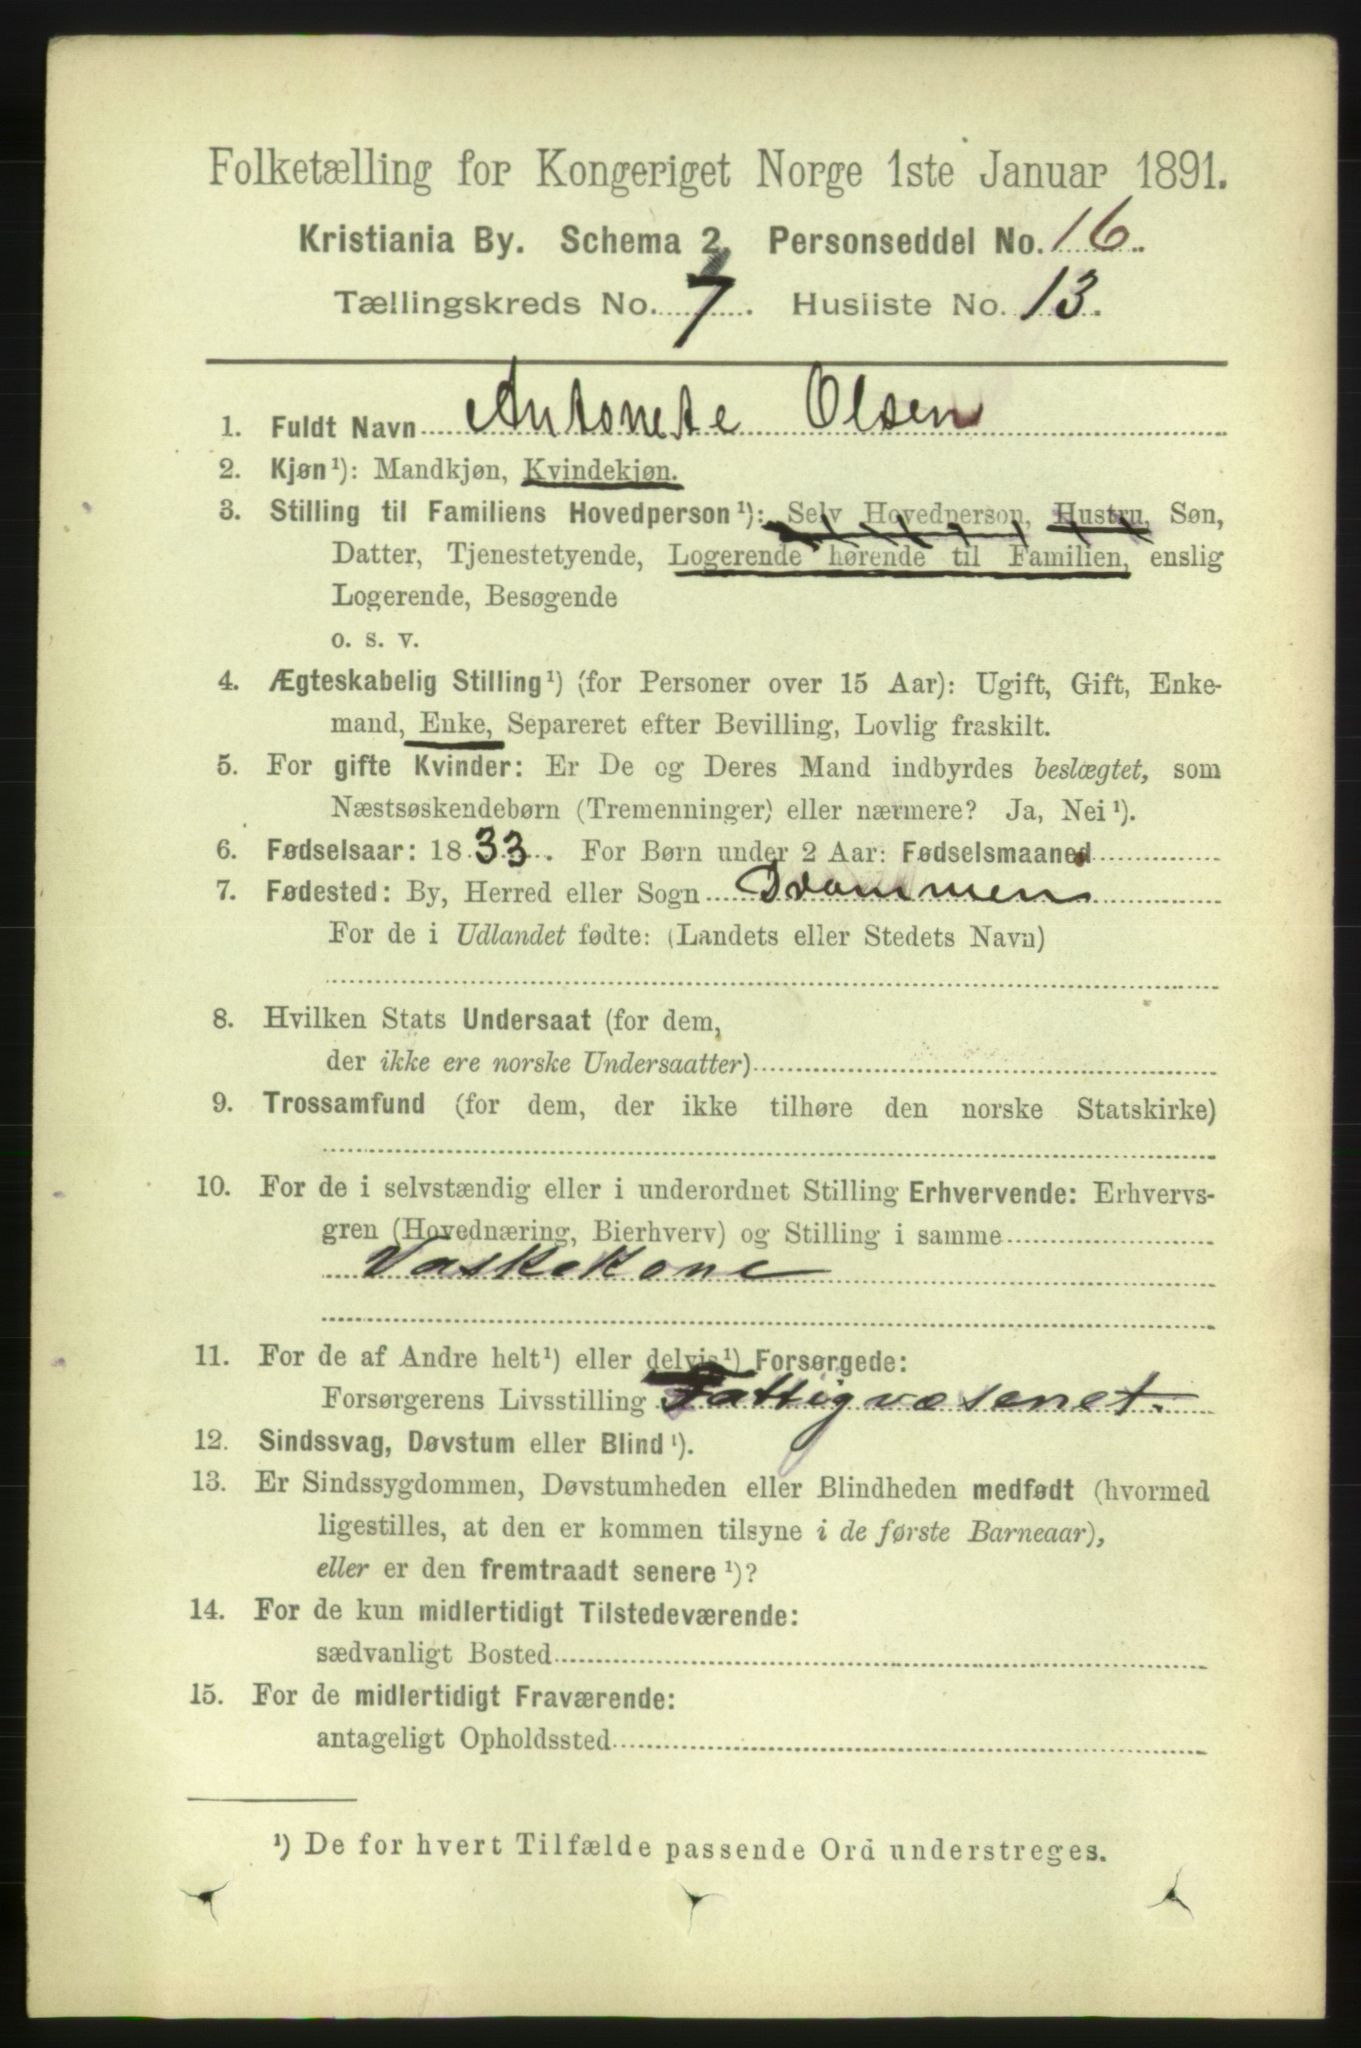 Folketælling for Kongeriget Norge 1ste Januar 1891.
Kristiania By. Schema 2. Personseddel No. 16.
Tællingskreds No. 7. Husliste No. 13.
1. Fuldt Navn Antonete Olsen
2. Kjøn¹): Mandkjøn, Kvindekjøn.
3. Stilling til Familiens Hovedperson¹): Selv Hovedperson, Hustru, Søn,
Datter, Tjenestetyende, Logerende hørende til Familien, enslig
Logerende, Besøgende
o. s. v.
4. Ægteskabelig Stilling¹) (for Personer over 15 Aar): Ugift, Gift, Enke-
mand, Enke, Separeret efter Bevilling, Lovlig fraskilt.
5. For gifte Kvinder: Er De og Deres Mand indbyrdes beslægtet, som
Næstsøskendebørn (Tremenninger) eller nærmere? Ja, Nei¹).
6. Fødselsaar: 1833. For Børn under 2 Aar: Fødselsmaaned
7. Fødested: By, Herred eller Sogn Drammen
For de i Udlandet fødte: (Landets eller Stedets Navn)
8. Hvilken Stats Undersaat (for dem,
der ikke ere norske Undersaatter)
9. Trossamfund (for dem, der ikke tilhøre den norske Statskirke)
10. For de i selvstændig eller i underordnet Stilling Erhvervende: Erhvervs-
gren (Hovednæring, Bierhverv) og Stilling i samme
Vaskekone
11. For de af Andre helt¹) eller delvis¹) Forsørgede:
Forsørgerens Livsstilling Fattigvæsenet.
12. Sindssvag, Døvstum eller Blind¹).
13. Er Sindssygdommen, Døvstumheden eller Blindheden medfødt (hvormed
ligestilles, at den er kommen tilsyne i de første Barneaar),
eller er den fremtraadt senere¹)?
14. For de kun midlertidigt Tilstedeværende:
sædvanligt Bosted
15. For de midlertidigt Fraværende:
antageligt Opholdssted
¹) De for hvert Tilfælde passende Ord understreges.